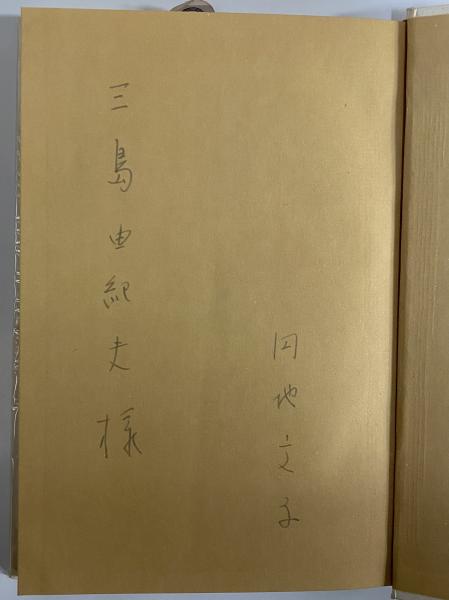 円地文子
三島由紀夫様